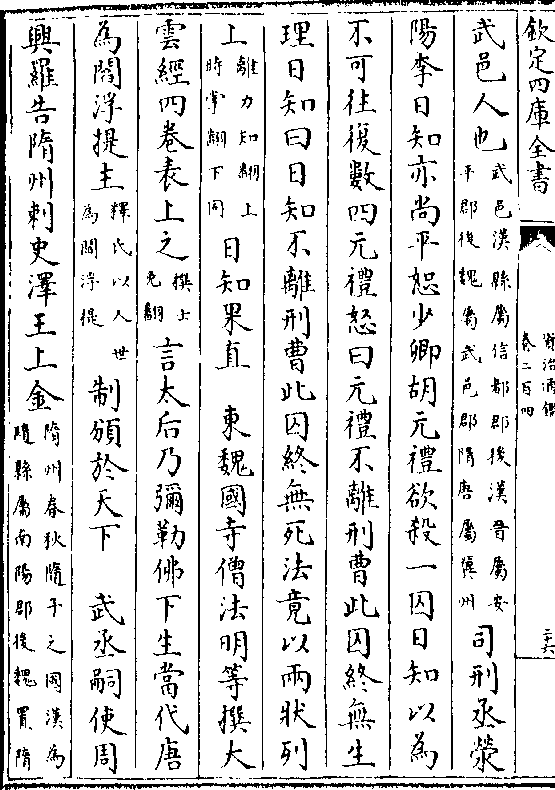 欽定四庫全書
資治通鑑
卷二百四
三六
武邑人也武邑漢縣屬信都郡後漢晉屬安
平郡後魏屬武邑郡隋唐屬冀州司刑丞滎
陽李日知亦尚平恕少卿胡元禮欲殺一囚日知以為
不可往復數四元禮怒曰元禮不離刑曹此囚終無生
理日知曰日知不離刑曹此囚終無死法竟以兩狀列
上離力知翻上
時掌翻下同日知果直　東魏國寺僧法明等撰大
雲經四卷表上之撰士
免翻言太后乃彌勒佛下生當代唐
為閻浮提主釋氏以人世
為閻浮提制頒於天下　武丞嗣使周
興羅告隋州刺史澤王上金隋州春秋隋子之國漢為
隨縣屬南陽郡後魏置隋